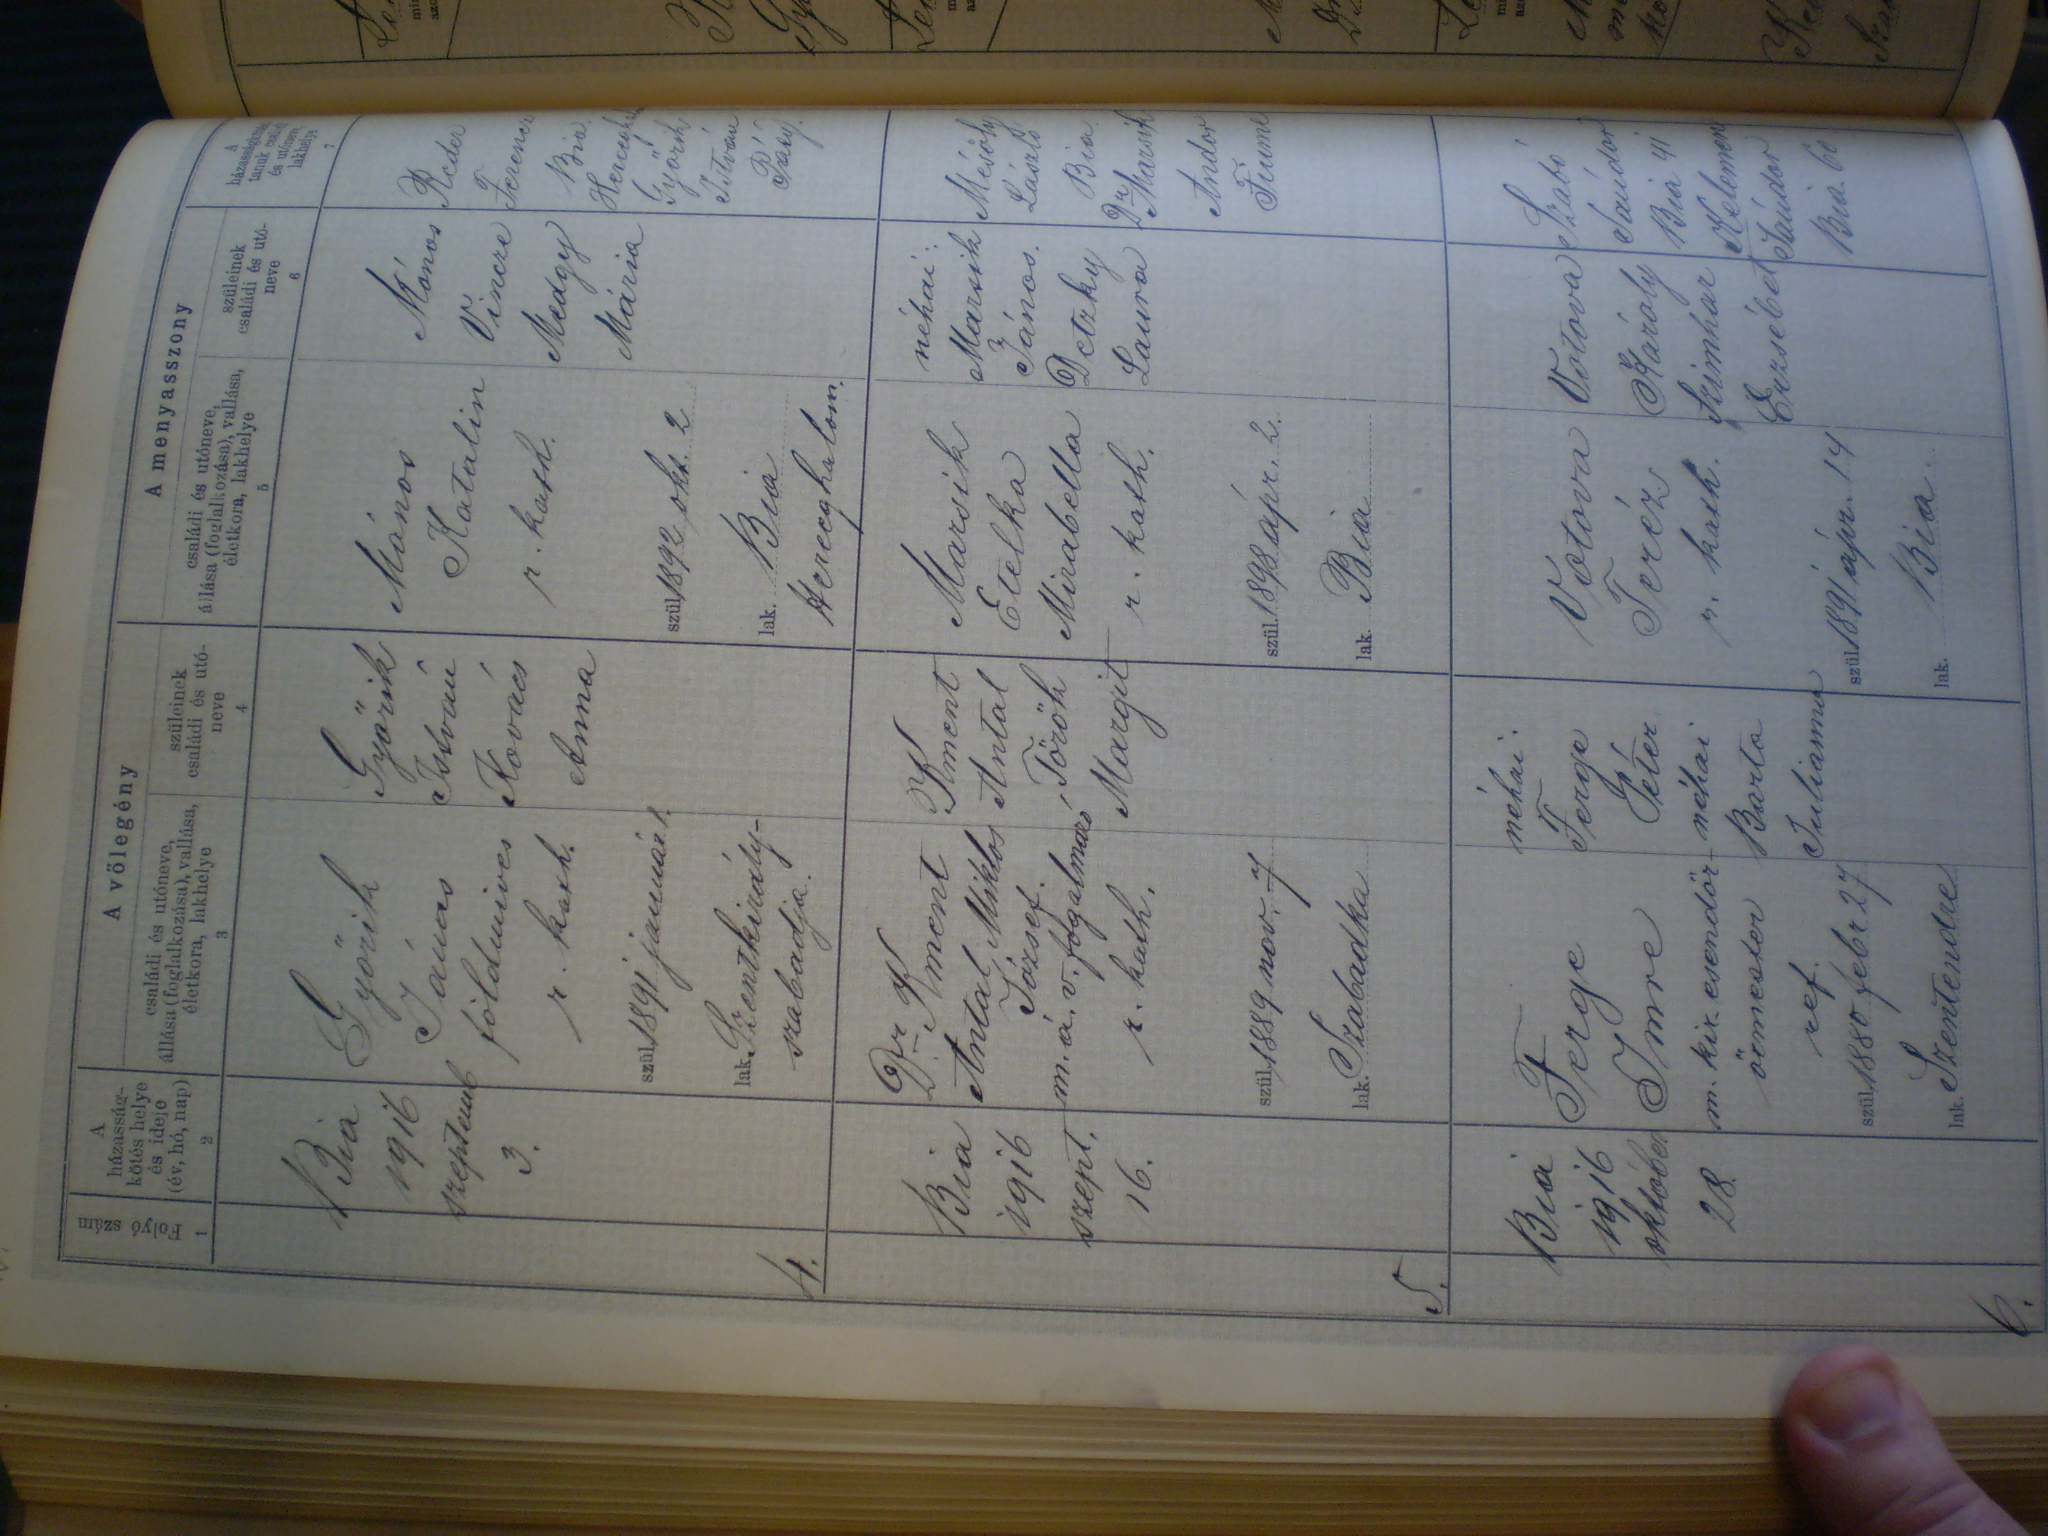 A vőlegény
A menyasszony
Folyó szám
1
A
házasság-
kötés helye
és ideje
(év, hó, nap)
2
családi és utóneve,
állása (foglalkozása), vallása,
életkora, lakhelye
3
szüleinek
családi és utó-
neve
4
családi és utóneve,
állása (foglalkozása), vallása,
életkora, lakhelye
5
szüleinek
családi és utó-
neve
6
A
házasságkötési
tanuk családi
és utóneve,
lakhelye
7
4.
Bia
1916
szeptemb
3.
Győrik
János
földmives
r. kath.
szül. 1891 január 1.
lak. Szentkirály-
szabadja.
Győrik
István
Kovács
Anna
Mónos
Katalin
r. kath.
szül. 1892 okt. 2
lak. Bia
Herceghalom.
Mónos
Vincze
Medgy
Mária
Reder
Ferencz
Bia
Győrik
István
5.
Bia
1916
szept.
16.
Dr Kment
Antal Miklós
József.
m. á. v. fogalmazó
r. kath.
szül. 1889 nov. 7
lak. Szabadka
Kment
Antal
Török
Margit
Marsik
Etelka
Mirabella
r. kath.
szül. 1898 ápr. 2.
lak. Bia
néhai:
Marsik
János.
Detzky
Laura
László
Bia
Dr Marsik
Andor
Fiume
6.
Bia
1916
október
28.
Ferge
Imre
m. kir. csendőr-
őrmester
ref.
szül. 1880 febr 27
lak. Szentendre
néhai:
Ferge
Péter
néhai
Barta
Julianna
Votova
Teréz
r. kath.
szül. 1891 ápr. 14
lak. Bia.
Votova
Károly
Szimhar
Erzsébet
Szabó
Sándor
Bia 41
Kelemen
Sándor
Bia. 60